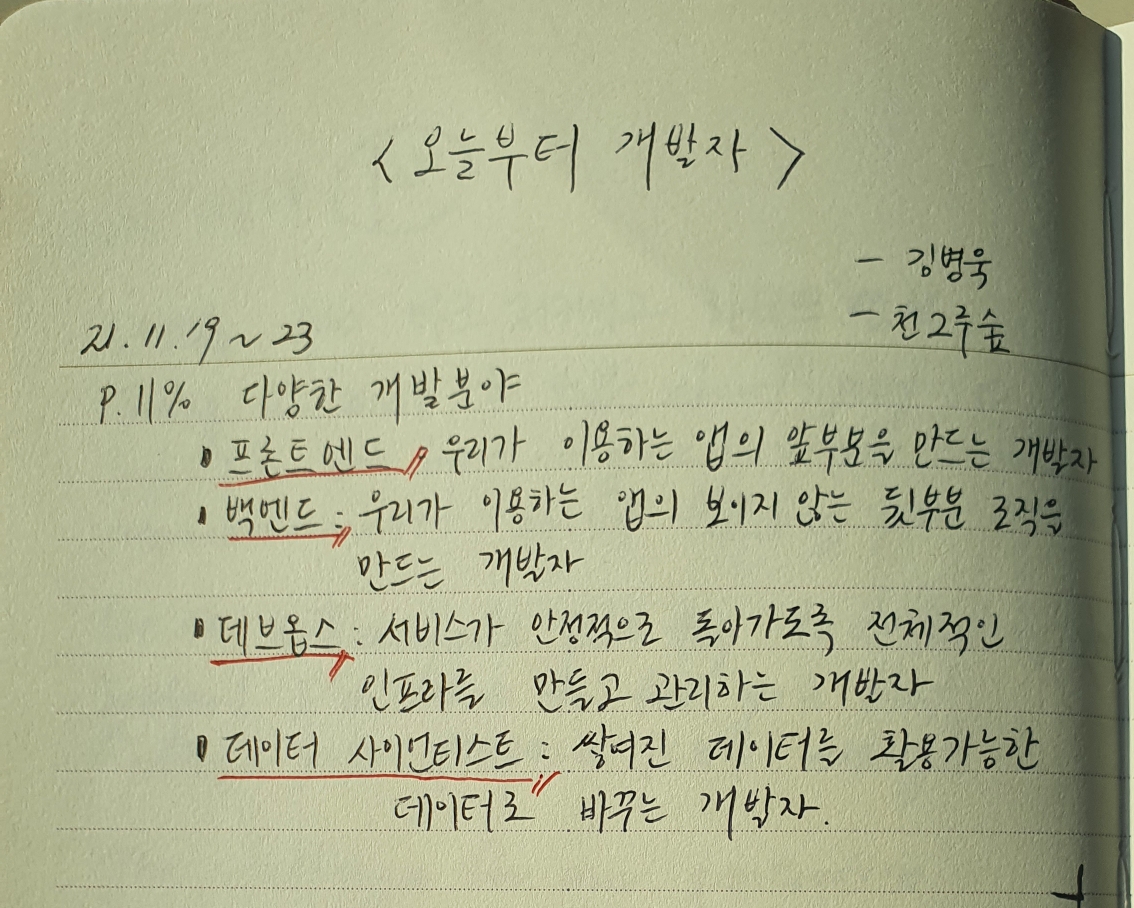 <오늘부터 개발자>
- 김병욱
- 천그루숲
21.11.19~23
P.11% 다양한 개발분야
• 프론트엔드 우리가 이용하는 앱의 앞부분을 만드는 개발자
• 백엔드: 우리가 이용하는 앱의 보이지 않는 뒷부분 로직을
만드는 개발자
• 데브옵스: 서비스가 안정적으로 돌아가도록 전체적인
인프라를 만들고 관리하는 개발자
• 데이터 사이언티스트: 쌓여진 데이터를 활용가능한
데이터로 바꾸는 개발자.